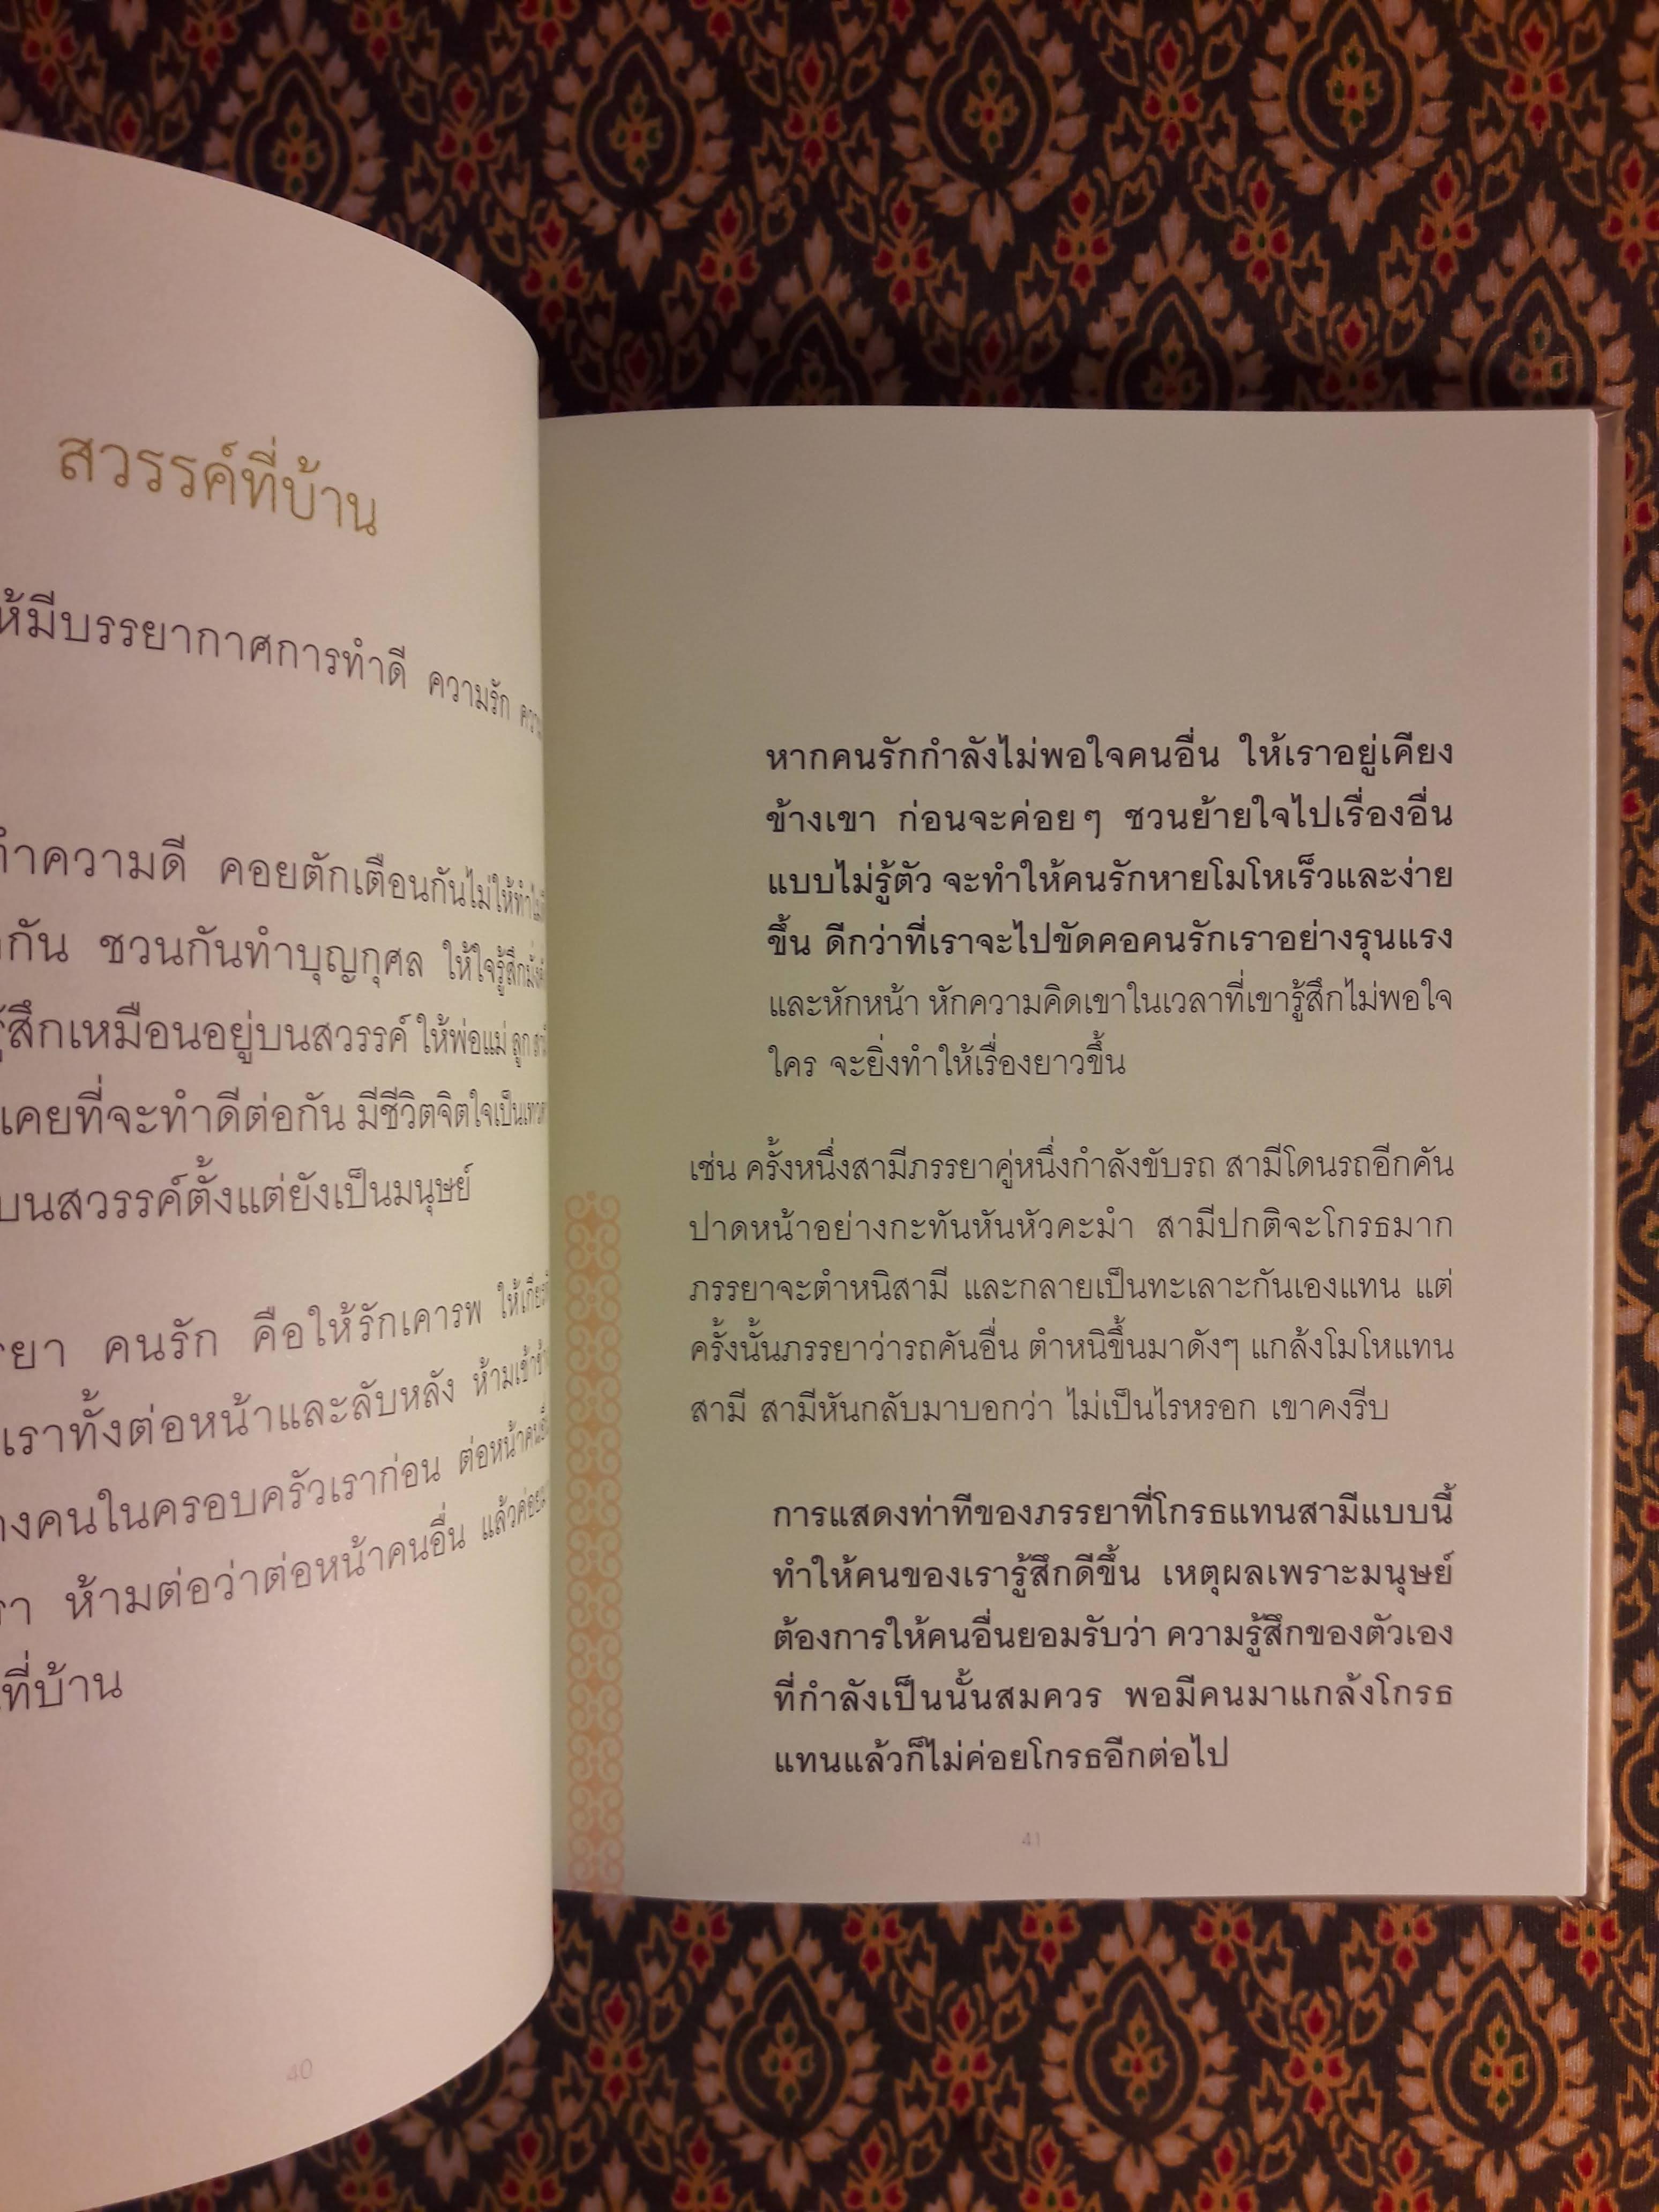 สวรรค์ที่บ้าน
ให้มีบรรยากาศการทำดี ความรัก
ทำความดี คอยตักเตือนกันไม่ให้ทำ
กัน ชวนกันทำบุญกุศล ให้ใจรู้สึก
รู้สึกเหมือนอยู่บนสวรรค์ ให้พ่อแม่ ลูก
เคยที่จะทำดีต่อกัน มีชีวิตจิตใจเป็น
บนสวรรค์ตั้งแต่ยังเป็นมนุษย์
คนรัก คือให้รักเคารพ
เราทั้งต่อหน้าและลับหลัง ห้ามเข้าข้าง
คนในครอบครัวเราก่อน ต่อหน้า
ห้ามต่อว่าต่อหน้าคนอื่น
ที่บ้าน
40
หากคนรักกำลังไม่พอใจคนอื่น ให้เราอยู่เคียง
ข้างเขา ก่อนจะค่อยๆ ชวนย้ายใจไปเรื่องอื่น
แบบไม่รู้ตัว จะทำให้คนรักหายโมโหเร็วและง่าย
ขึ้น ดีกว่าที่เราจะไปขัดคอคนรักเราอย่างรุนแรง
และหักหน้า หักความคิดเขาในเวลาที่เขารู้สึกไม่พอใจ
ใคร จะยิ่งทำให้เรื่องยาวขึ้น
เช่น ครั้งหนึ่งสามีภรรยาคู่หนึ่งกำลังขับรถ สามีโดนรถอีกคัน
ปาดหน้าอย่างกะทันหันหัวคะมำ สามีปกติจะโกรธมาก
ภรรยาจะตำหนิสามี และกลายเป็นทะเลาะกันเองแทน แต่
ครั้งนั้นภรรยาว่ารถคันอื่น ตำหนิขึ้นมาดังๆ แกล้งโมโหแทน
สามี สามีหันกลับมาบอกว่า ไม่เป็นไรหรอก เขาคงรีบ
การแสดงท่าทีของภรรยาที่โกรธแทนสามีแบบนี้
ทำให้คนของเรารู้สึกดีขึ้น เหตุผลเพราะมนุษย์
ต้องการให้คนอื่นยอมรับว่า ความรู้สึกของตัวเอง
ที่กำลังเป็นนั้นสมควร พอมีคนมาแกล้งโกรธ
แทนแล้วก็ไม่ค่อยโกรธอีกต่อไป
41